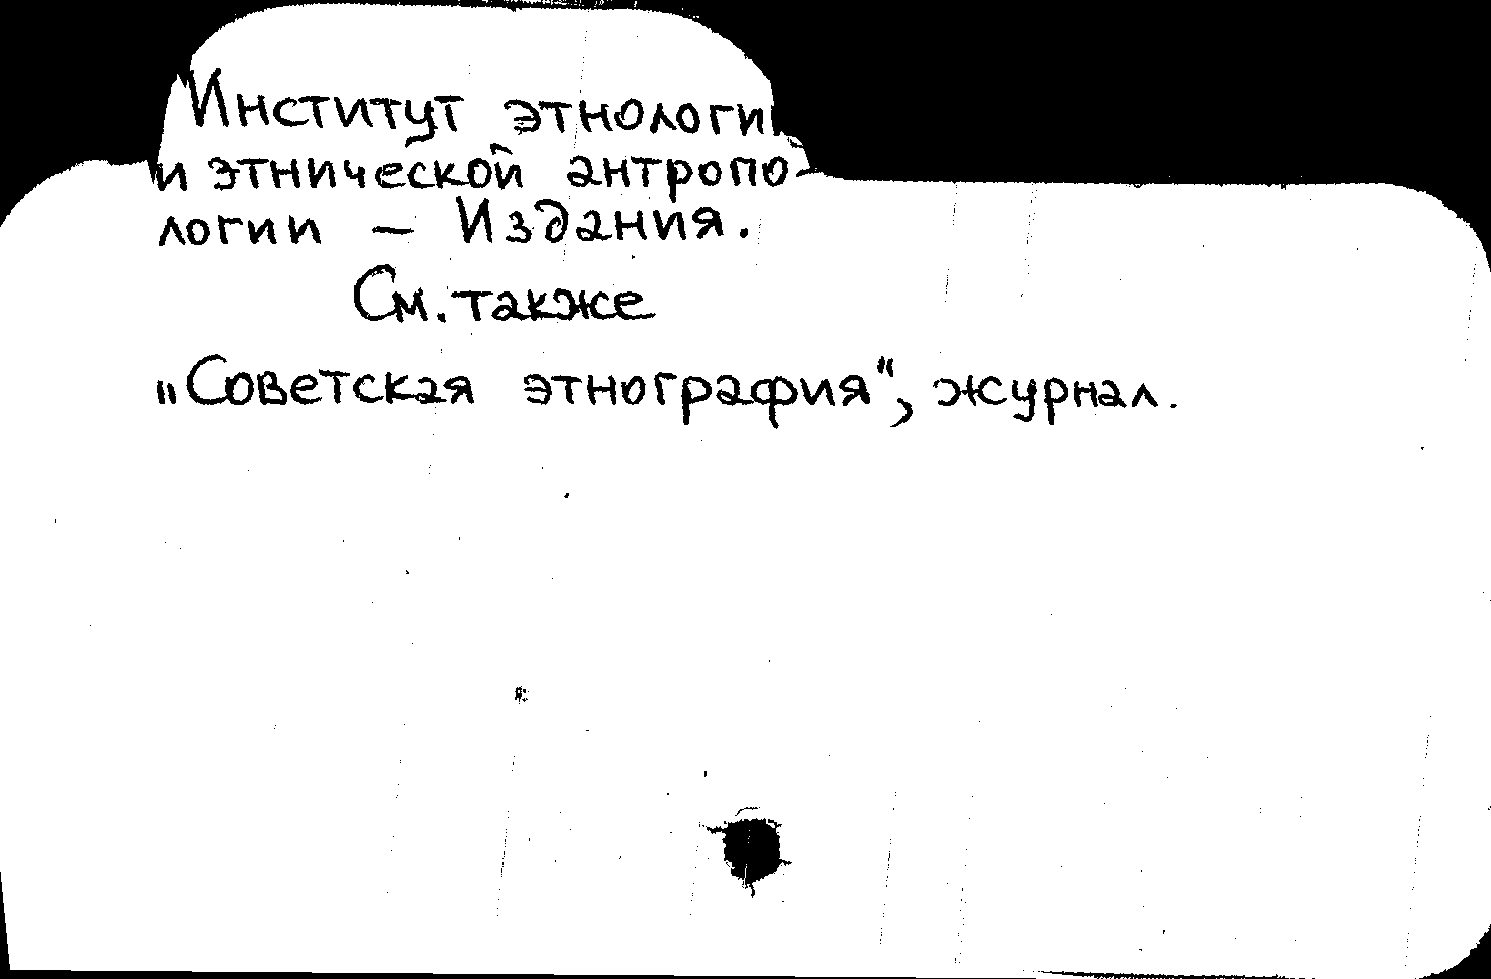 Институт этнологи
и этнической антропо-
логии – Издания.
См. также
„Советская этнография“, журнал.